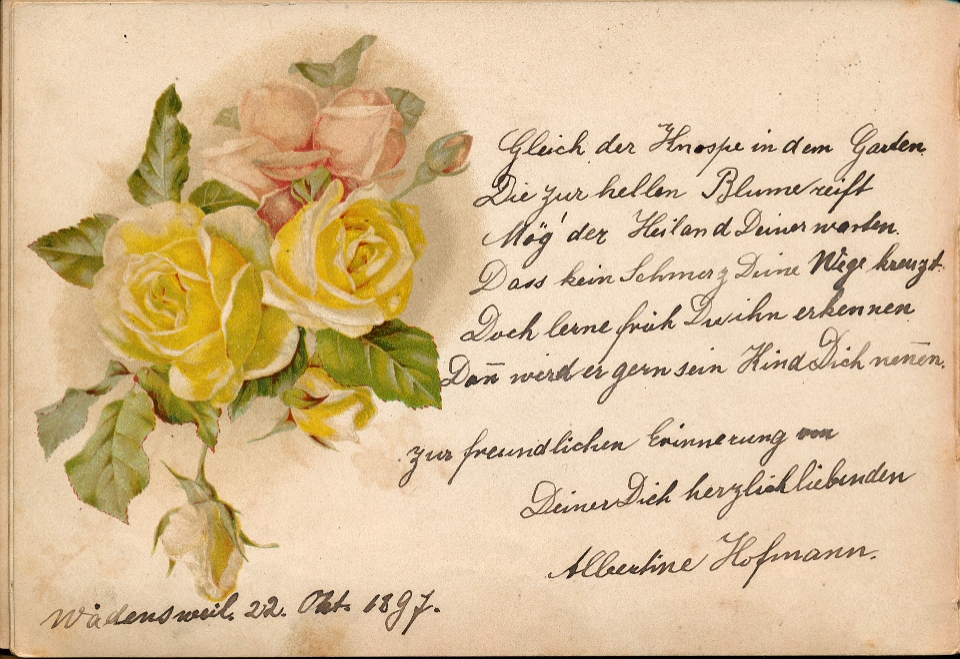 Gleich der Knospe in dem Garten.
Die zur hellen Blume reift
Mög' der Heiland Deiner warten.
Dass kein Schmerz Deine Wege kreuzt.
Doch lerne früh Du ihn erkennen
Dan̄ wird er gern sein Kind Dich nen̄en.
Zur freundlichen Erinnerung von
Deiner Dich herzlich liebenden
Albertine Hofmann.
Wädensweil. 22. Okt. 1897.